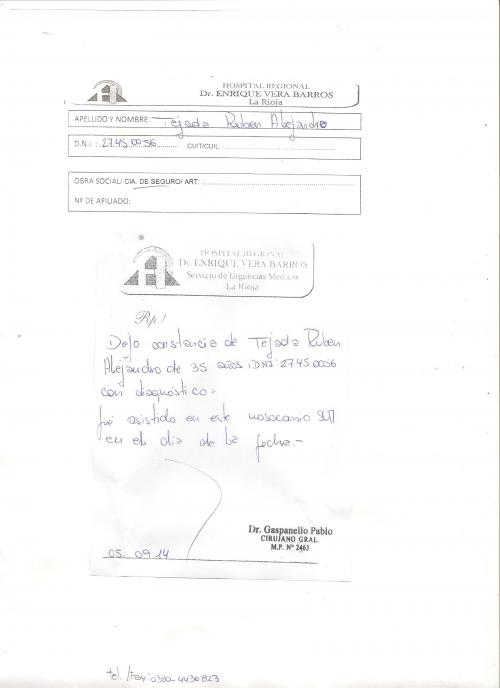 HOSPITAL REGIONAL
Dr. ENRIQUE VERA BARROS
La Rioja
APELLIDO Y NOMBRE: Tejada Ruben Alejandro
D.N.I.: 27450056 CUIT/CUIL:
OBRA SOCIAL/ CIA. DE SEGURO/ ART:
Nº DE AFILIADO:
HOSPITAL REGIONAL
Dr. ENRIQUE VERA BARROS
Servicio de Urgencias Médicas
La Rioja
Rp./
Dejo constancia de Tejada Ruben
Alejandro de 35 años, DNI: 27450056
con diagnóstico:
fué asistido en este nosocomio
en el día de la fecha.-
Dr. Gaspanello Pablo
CIRUJANO GRAL.
M.P. Nº 2463
05 09 14
tel./Fax: 0380-4436823